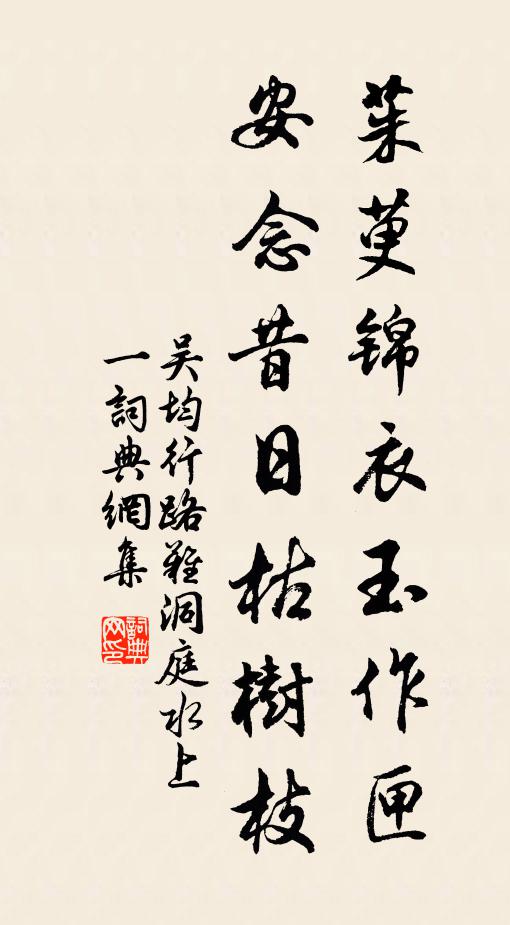 茱萸錦衣玉作匣
安念昔日枯樹枝
吳均行路難洞庭水上
一詞典網集
詞典网印